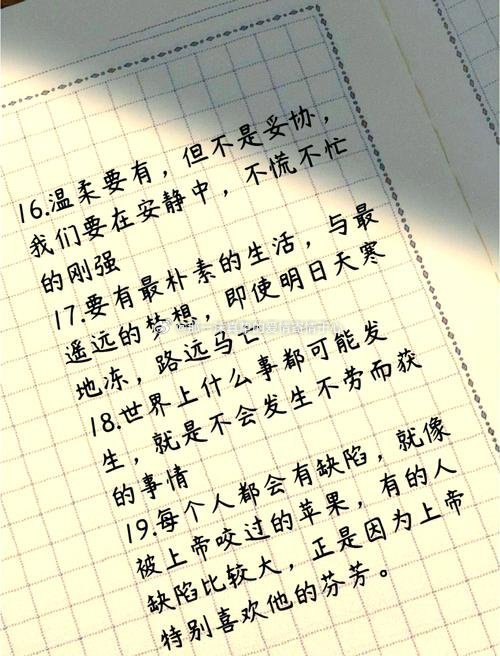 16.温柔要有，但不是妥协，
我们要在安静中，不慌不忙
的刚强
17.要有最朴素的生活，与最
遥远的梦想，即使明日天寒
地冻，路远马亡
18.世界上什么事都可能发
生，就是不会发生不劳而获
的事情
19.每个人都会有缺陷，就像
被上帝咬过的苹果，有的人
缺陷比较大，正是因为上帝
特别喜欢他的芬芳。